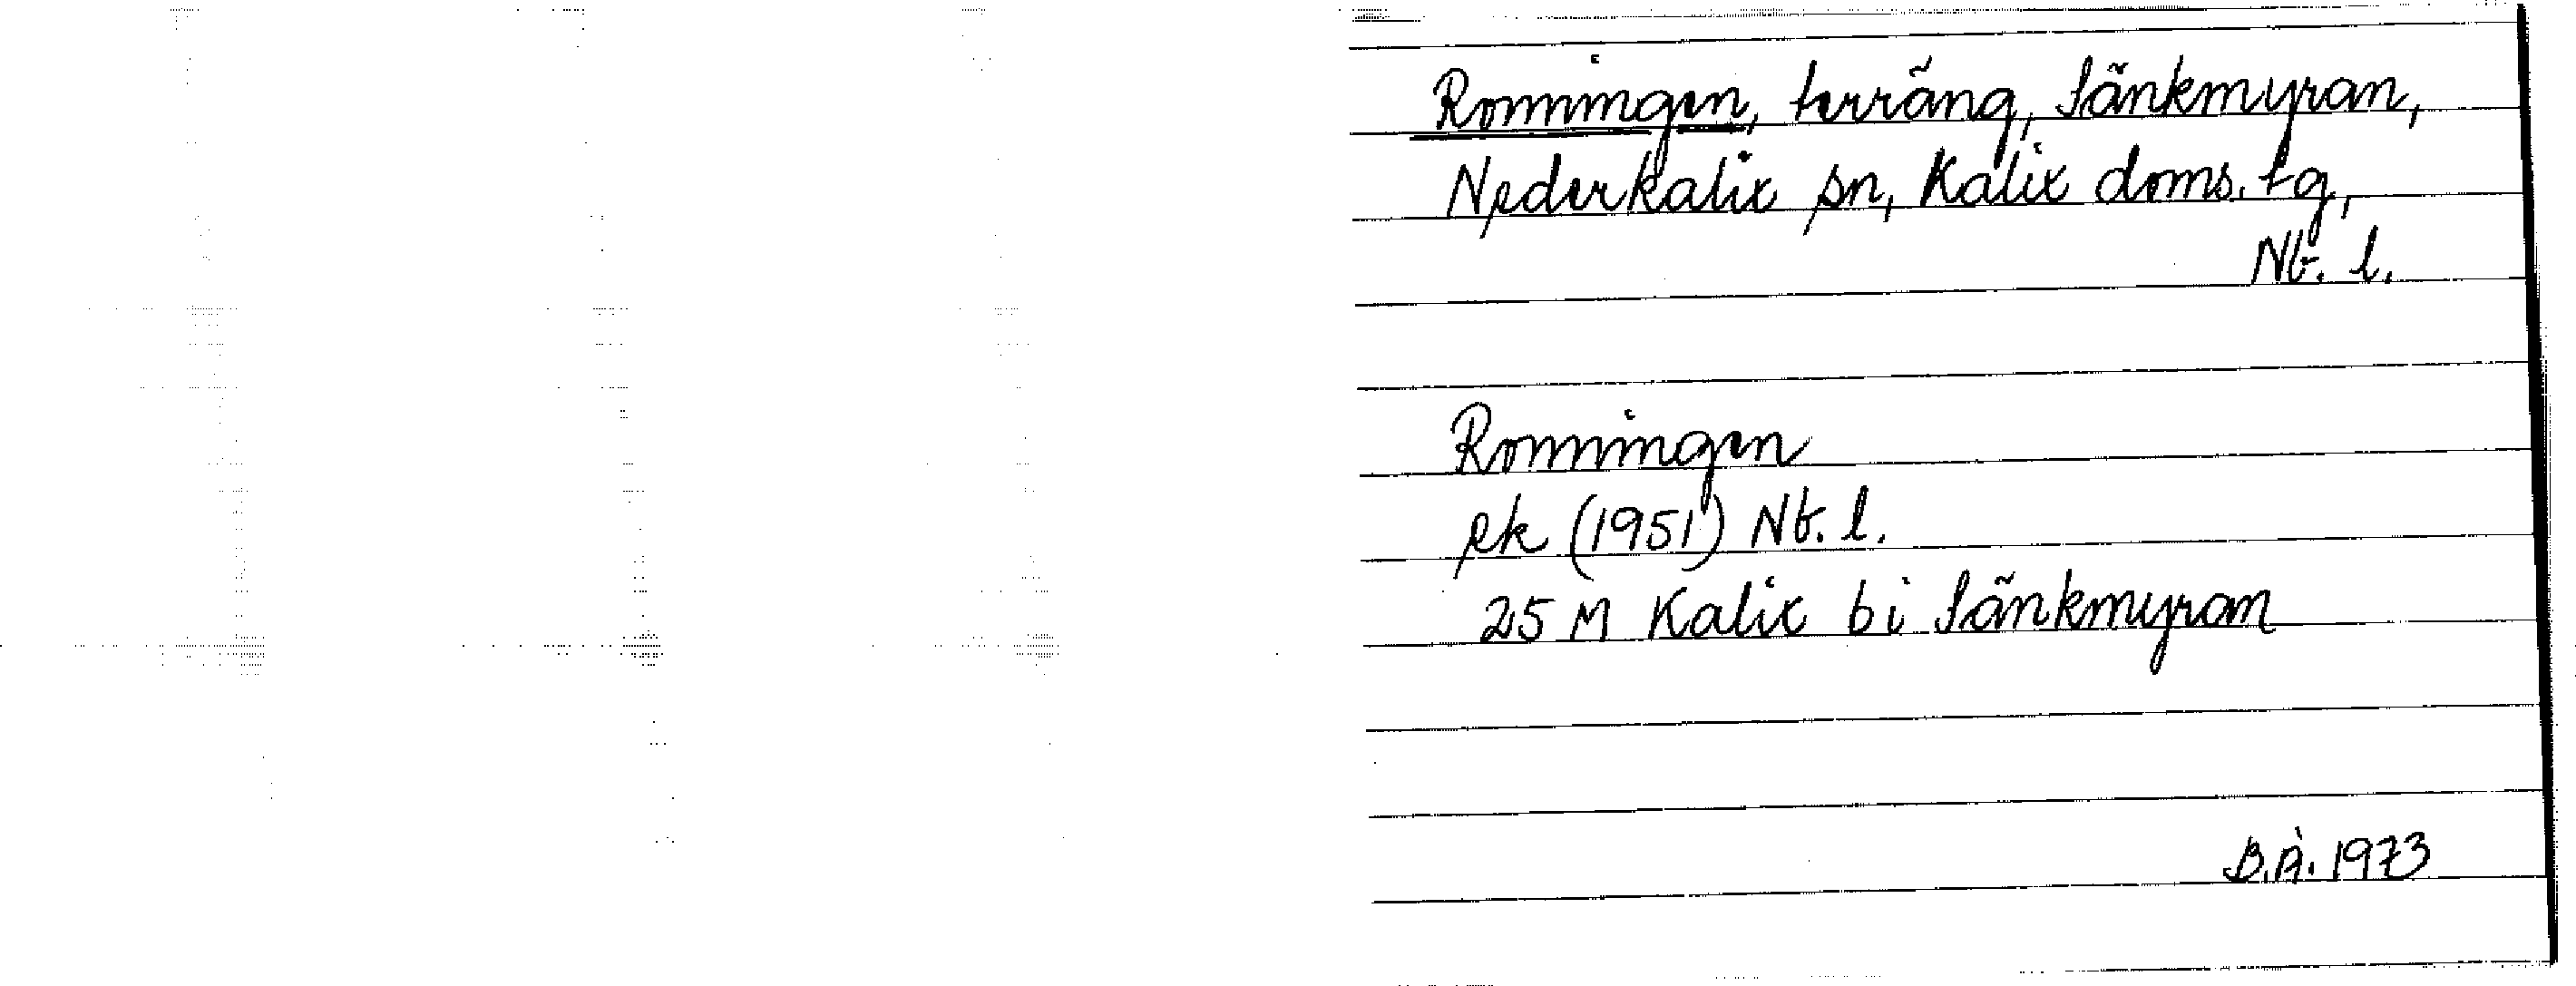 Ronningen, terräng, Sänkmyran,
Nederkalix sn, Kalix doms. tg,
Nb. l.
Ronningen
ek (1951) Nb. l.
25 M Kalix bi Sänkmyran
B.Å. 1973